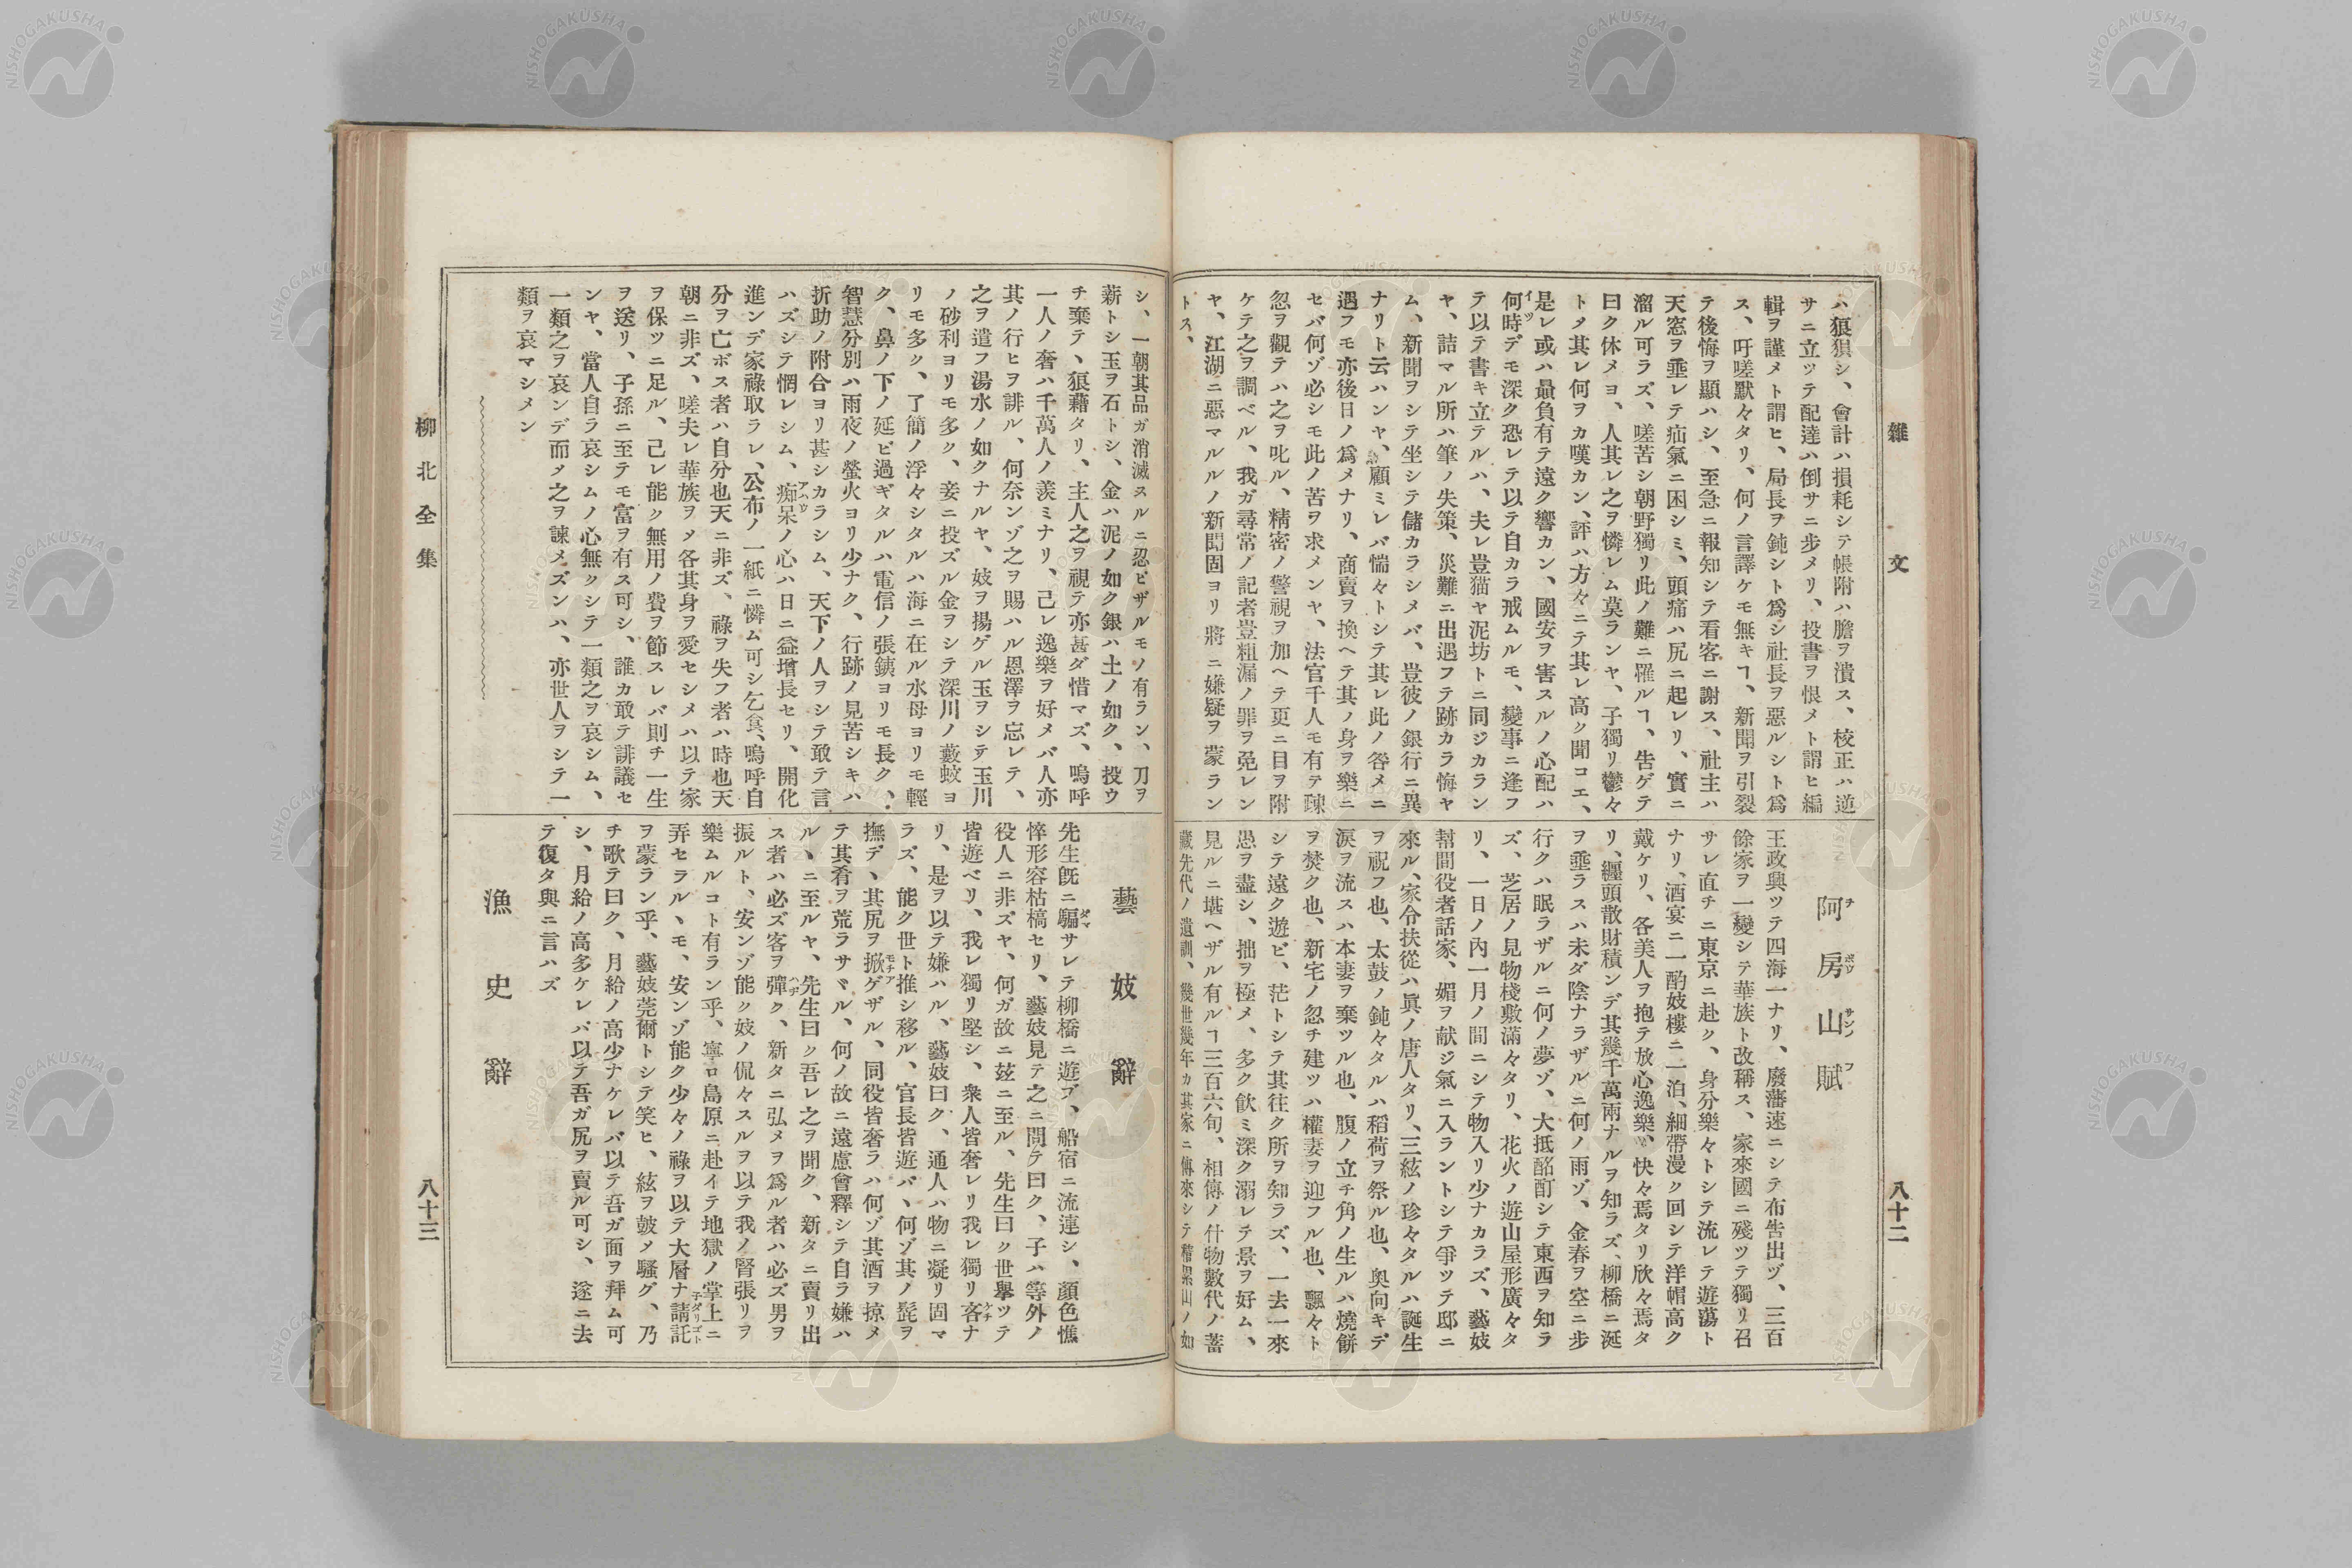 雜文
八十二
ハ狼狽シ、會計ハ損耗シテ帳附ハ膽ヲ潰ス、校正ハ逆
サニ立ツテ配達ハ倒サニ步メリ、投書ヲ恨メト謂ヒ編
輯ヲ謹メト謂ヒ、局長ヲ鈍シト爲シ社長ヲ惡ルシト爲
ス、吁嗟默々タリ、何ノ言譯ケモ無キヿ、新聞ヲ引裂
テ後悔ヲ顯ハシ、至急ニ報知シテ看客ニ謝ス、社主ハ
天窓ヲ垂レテ疝氣ニ困シミ、頭痛ハ尻ニ起レリ、實ニ
溜ル可ラズ、嗟苦シ朝野獨リ此ノ難ニ罹ルヿ、告ゲテ
曰ク休メヨ、人其レ之ヲ憐レム莫ランヤ、子獨リ鬱々
トメ其レ何ヲカ嘆カン、評ハ方々ニテ其レ高ク聞コエ、
是レ或ハ贔負有テ遠ク響カン、國安ヲ害スルノ心配ハ
何時デモ深ク恐レテ以テ自カラ戒ムルモ、變事ニ逢フ
イツ
テ以テ書キ立テルハ、夫レ豈猫ヤ泥坊トニ同ジカラン
ヤ、詰マル所ハ筆ノ失策、災難ニ出遇フテ跡カラ悔ヤ
ム、新聞ヲシテ坐シテ儲カラシメバ、豈彼ノ銀行ニ異
ナリト云ハンヤ、顧ミレバ惴々トシテ其レ此ノ咎メニ
遇フモ亦後日ノ爲メナリ、商賣ヲ換ヘテ其ノ身ヲ樂ニ
セバ何ゾ必シモ此ノ苦ヲ求メンヤ、法官千人モ有テ疎
忽ヲ觀テハ之ヲ叱ル、精密ノ警視ヲ加ヘテ更ニ目ヲ附
ケテ之ヲ調ベル、我ガ尋常ノ記者豈粗漏ノ罪ヲ免レン
ヤ、江湖ニ惡マルルノ新聞固ヨリ將ニ嫌疑ヲ蒙ラン
トス、
阿房山賦
チ ボウ サンノ フ
王政興ツテ四海一ナリ、廢藩速ニシテ布告出ヅ、三百
餘家ヲ一變シテ華族ト改稱ス、家來國ニ殘ツテ獨リ召
サレ直チニ東京ニ赴ク、身分樂々トシテ流レテ遊蕩ト
ナリ、酒宴ニ一酌妓樓ニ一泊、細帶漫ク回シテ洋帽高ク
戴ケリ、各美人ヲ抱テ放心逸樂、快々焉タリ欣々焉タ
リ、纏頭散財積ンデ其幾千萬兩ナルヲ知ラズ、柳橋ニ涎
ヲ垂ラスハ未ダ陰ナラザルニ何ノ雨ゾ、金春ヲ空ニ步
行クハ眠ラザルニ何ノ夢ゾ、大抵酩酊シテ東西ヲ知ラ
ズ、芝居ノ見物棧敷滿々タリ、花火ノ遊山屋形廣々タ
リ、一日ノ內一月ノ間ニシテ物入リ少ナカラズ、藝妓
幇間役者話家、媚ヲ献ジ氣ニ入ラントシテ爭ツテ邸ニ
來ル、家令扶從ハ眞ノ唐人タリ、三絃ノ珍々タルハ誕生
ヲ祝フ也、太鼓ノ鈍々タルハ稻荷ヲ祭ル也、奥向キデ
淚ヲ流スハ本妻ヲ棄ツル也、腹ノ立チ角ノ生ルハ燒餅
ヲ焚ク也、新宅ノ忽チ建ツハ權妻ヲ迎フル也、飄々ト
シテ遠ク遊ビ、茫トシテ其往ク所ヲ知ラズ、一去一來
愚ヲ盡シ、拙ヲ極メ、多ク飮ミ深ク溺レテ景ヲ好ム、
見ルニ堪ヘザル有ルヿ三百六旬、相傳ノ什物數代ノ蓄
藏先代ノ遺訓、幾世幾年カ其家ニ傳來シテ積累山ノ如
シ、一朝其品ガ消滅スルニ忍ビザルモノ有ラン、刀ヲ
薪トシ玉ヲ石トシ、金ハ泥ノ如ク銀ハ土ノ如ク、投ウ
チ棄テ、狼藉タリ、主人之ヲ視テ亦甚ダ惜マズ、嗚呼
一人ノ奢ハ千萬人ノ羨ミナリ、己レ逸樂ヲ好メバ人亦
其ノ行ヒヲ誹ル、何奈ンゾ之ヲ賜ハル恩澤ヲ忘レテ、
之ヲ遣フ湯水ノ如クナルヤ、妓ヲ揚ゲル玉ヲシテ玉川
ノ砂利ヨリモ多ク、妾ニ投ズル金ヲシテ深川ノ藪蚊ヨ
リモ多ク、了簡ノ浮々シタルハ海ニ在ル水母ヨリモ輕
ク、鼻ノ下ノ延ビ過ギタルハ電信ノ張銕ヨリモ長ク、
智慧分別ハ雨夜ノ螢火ヨリ少ナク、行跡ノ見苦シキハ
折助ノ附合ヨリ甚シカラシム、天下ノ人ヲシテ敢テ言
ハズシテ惘レシム、痴呆ノ心ハ日ニ益增長セリ、開化
アハウ
進ンデ家祿取ラレ、公布ノ一紙ニ憐ム可シ乞食、嗚呼自
分ヲ亡ボス者ハ自分也天ニ非ズ、祿ヲ失フ者ハ時也天
朝ニ非ズ、嗟夫レ華族ヲメ各其身ヲ愛セシメハ以テ家
ヲ保ツニ足ル、己レ能ク無用ノ費ヲ節スレバ則チ一生
ヲ送リ、子孫ニ至テモ富ヲ有ス可シ、誰カ敢テ誹議セ
ンヤ、當人自ラ哀シムノ心無クシテ一類之ヲ哀シム、
一類之ヲ哀ンデ而メ之ヲ諫メズンハ、亦世人ヲシテ一
類ヲ哀マシメン
藝妓辭
先生旣ニ騙サレテ柳橋ニ遊ブ、船宿ニ流連シ、顏色憔
ダマ
悴形容枯槁セリ、藝妓見テ之ニ問テ曰ク、子ハ等外ノ
役人ニ非ズヤ、何ガ故ニ玆ニ至ル、先生曰ク世擧ツテ
皆遊ベリ、我レ獨リ堅シ、衆人皆奢レリ我レ獨リ吝ナ
ケチ
リ、是ヲ以テ嫌ハル、藝妓曰ク、通人ハ物ニ凝リ固マ
ラズ、能ク世ト推シ移ル、官長皆遊バ、何ゾ其ノ髭ヲ
撫デ、其尻ヲ掀ゲザル、同役皆奢ラハ何ゾ其酒ヲ掠メ
モチア
テ其肴ヲ荒ラサヾル、何ノ故ニ遠慮會釋シテ自ラ嫌ハ
ルヽニ至ルヤ、先生曰ク吾レ之ヲ聞ク、新タニ賣リ出
ス者ハ必ズ客ヲ彈ク、新タニ弘メヲ爲ル者ハ必ズ男ヲ
ハヂ
振ルト、安ンゾ能ク妓ノ侃々スルヲ以テ我ノ腎張リヲ
樂ムルコト有ラン乎、寧ロ島原ニ赴イテ地獄ノ掌上ニ
弄セラルヽモ、安ンゾ能ク少々ノ祿ヲ以テ大層ナ請託
子ダリゴト
ヲ蒙ラン乎、藝妓莞爾トシテ笑ヒ、絃ヲ皷メ騷グ、乃
チ歌テ曰ク、月給ノ高少ナケレバ以テ吾ガ面ヲ拜ム可
シ、月給ノ高多ケレバ以テ吾ガ尻ヲ賣ル可シ、遂ニ去
テ復タ與ニ言ハズ
漁史辭
柳北全集
八十三
NISHOGAKUSHA